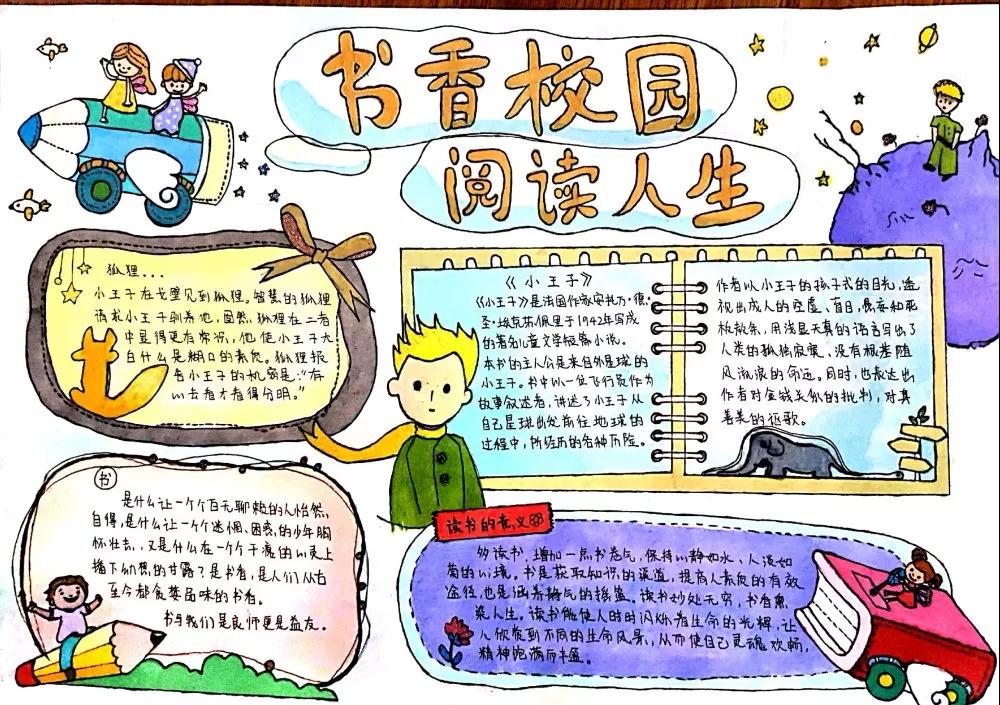 书香校园
阅读人生
狐狸...
小王子在戈壁见到狐狸。智慧的狐狸
请求小王子驯养他，虽然，狐狸在二者
中显得更有常识，他使小王子大
白什么是糊口的素质。狐狸报
告小王子的机密是:“有
心去看才看得分明。”
《小王子》
《小王子》是法国作家安托万·德·
圣·埃克苏佩里于1942年写成
的著名儿童文学短篇小说。
本书的主人公是来自外星球的
小王子。书中以一位飞行员作为
故事叙述者，讲述了小王子从
自己星球出发前往地球的
过程中，所经历的各种历险。
作者以小王子的孩子式的目光，透
视出成人的空虚、盲目，愚妄和死
板教条，用浅显天真的语言写出了
人类的孤独寂寞、没有根基随
风流浪的命运。同时，也表达出
作者对金钱关系的批判，对真
善美的讴歌。
书
是什么让一个个百无聊赖的人怡然
自得，是什么让一个个迷惘、困惑的少年胸
怀壮志，又是什么在一个个干涸的心灵上
播下幻想的甘露？是书香，是人们从古
至今都食菜品味的书香。
书与我们是良师更是益友。
读书的意义
多读书，增加一点书卷气，保持心静如水、人淡如
菊的心境。书是获取知识的渠道，提高人素质的有效
途径，也是涵养静气的摇篮。读书妙处无穷，书香熏
染人生。读书能使人时时闪烁着生命的光辉，让
人欣赏到不同的生命风景，从而使自己灵魂欢畅，
精神饱满而丰盈。